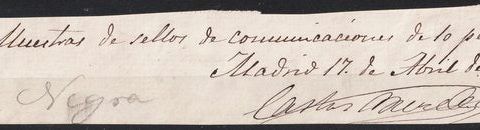 Muestras de sellos de comunicaciones de 10
Madrid 17. de Abril de
Negra
Carlos